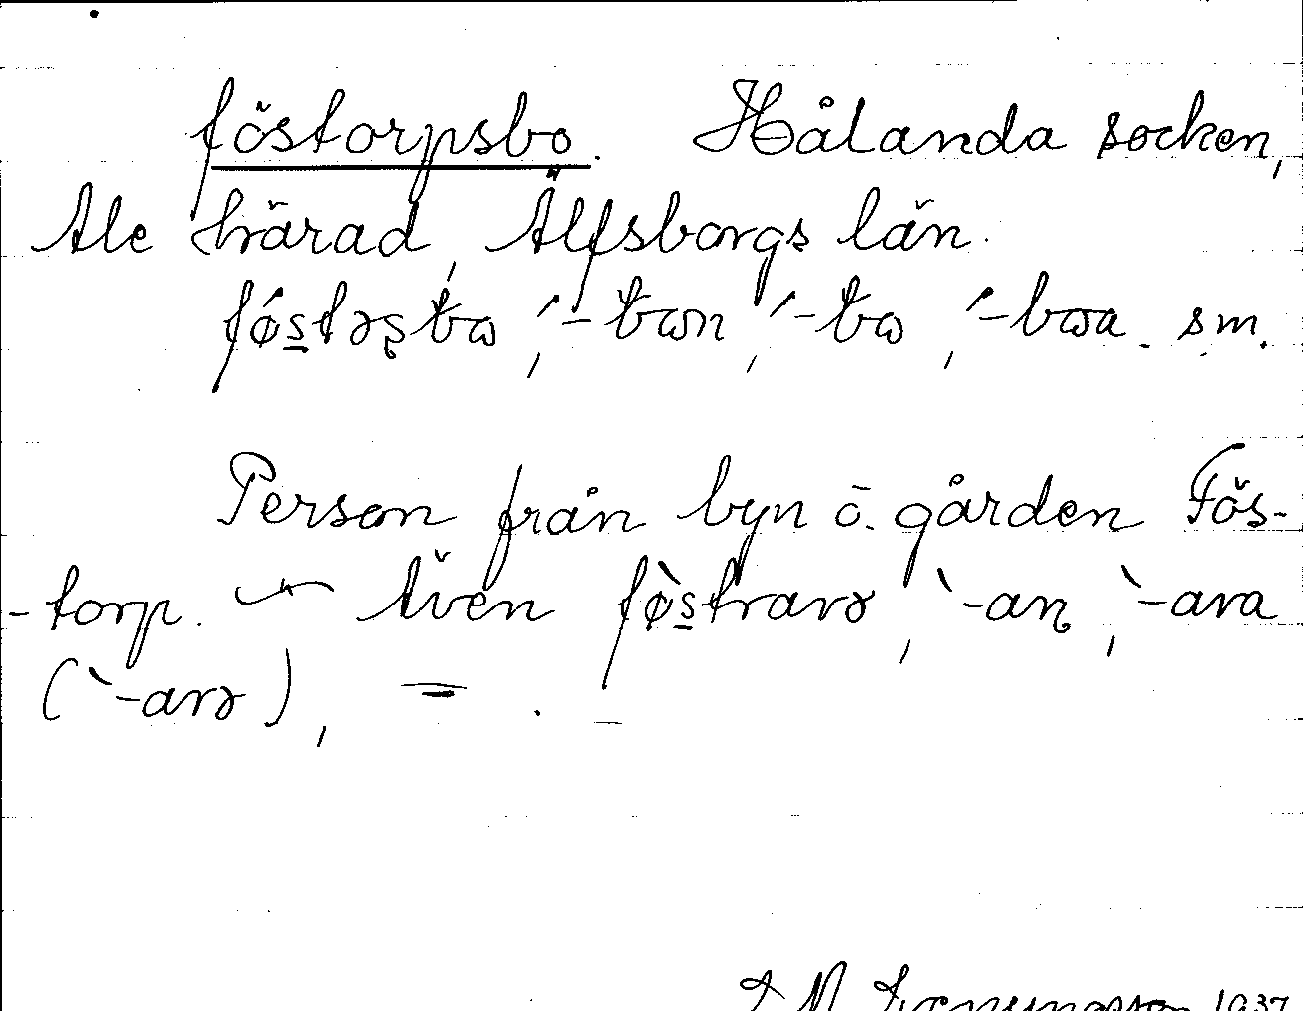 föstorpsbo. Hålanda socken,
Ale härad, Älfsborgs län.
fǿstəʂbω, ́-bωn, ́-bω, ́-bωa. sm.
Person från byn ō. gården Fös-
-torp. Även fø̀strarə, ̀-aɳ, ̀-ara
(̀-arə), = . _
1937